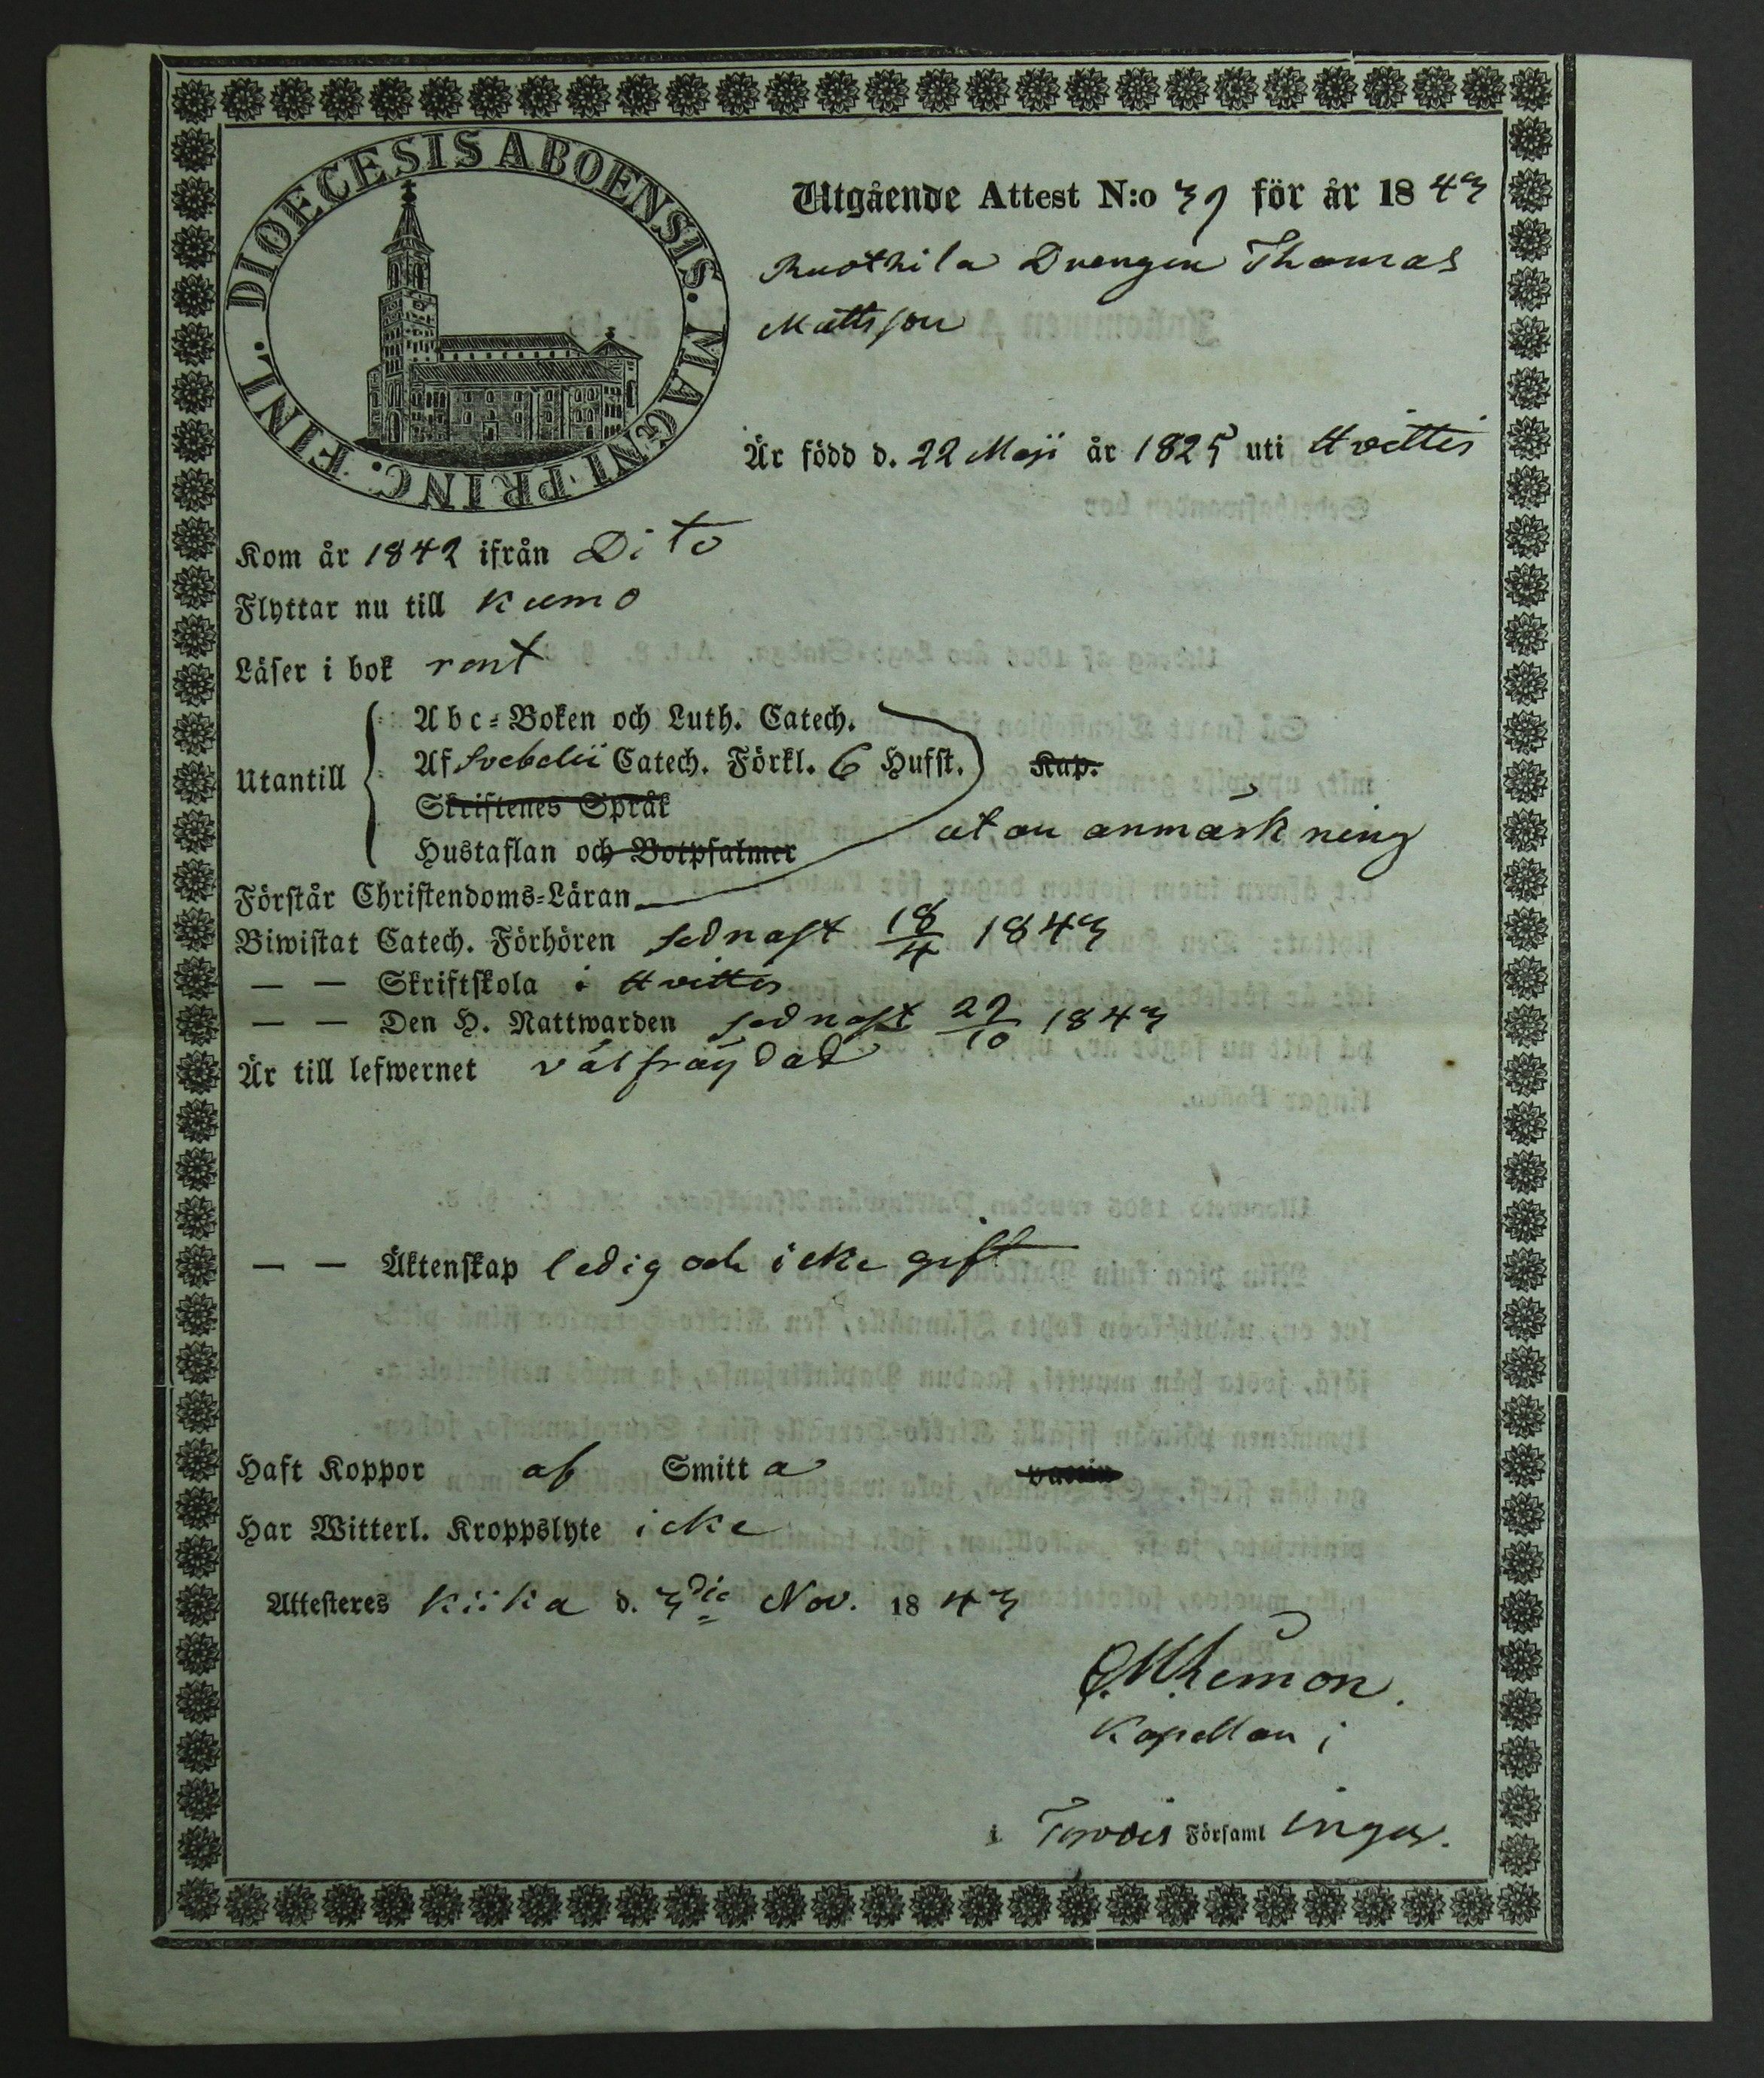 DIOECESIS ABOENSIS. MAGNI PRINC. FINL.
Utgående Attest N:o 39 för år 1843
Ruothila Drengen Thomas
Mattsson
Är född d. 22 Maji år 1825 uti Hvittis
Kom år 1842 ifrån Dito
Flyttar nu till Kumo
Läser i bok rent
Utantill
Abc-Boken och Luth. Catech.
Af Svebelii Catech. Förkl. 6 Hufst. Kap.
Skriftenes Språk
Hustaflan och Botpsalmer
utan anmärkning
Förstår Christendoms-Läran
Biwistat Catech. Förhören sednast 18/4 1843
— — Skriftskola i Hvittis
— — Den H. Nattwarden sednast 29/10 1843
Är till lefwernet välfräjdad
— — Äktenskap ledig och icke gift
Haft Koppor af Smitta vaccin
Har Witterl. Kroppslyte icke
Attesteres Kiika d. 3die Nov. 1843
Kapellan i
i Församlingar.